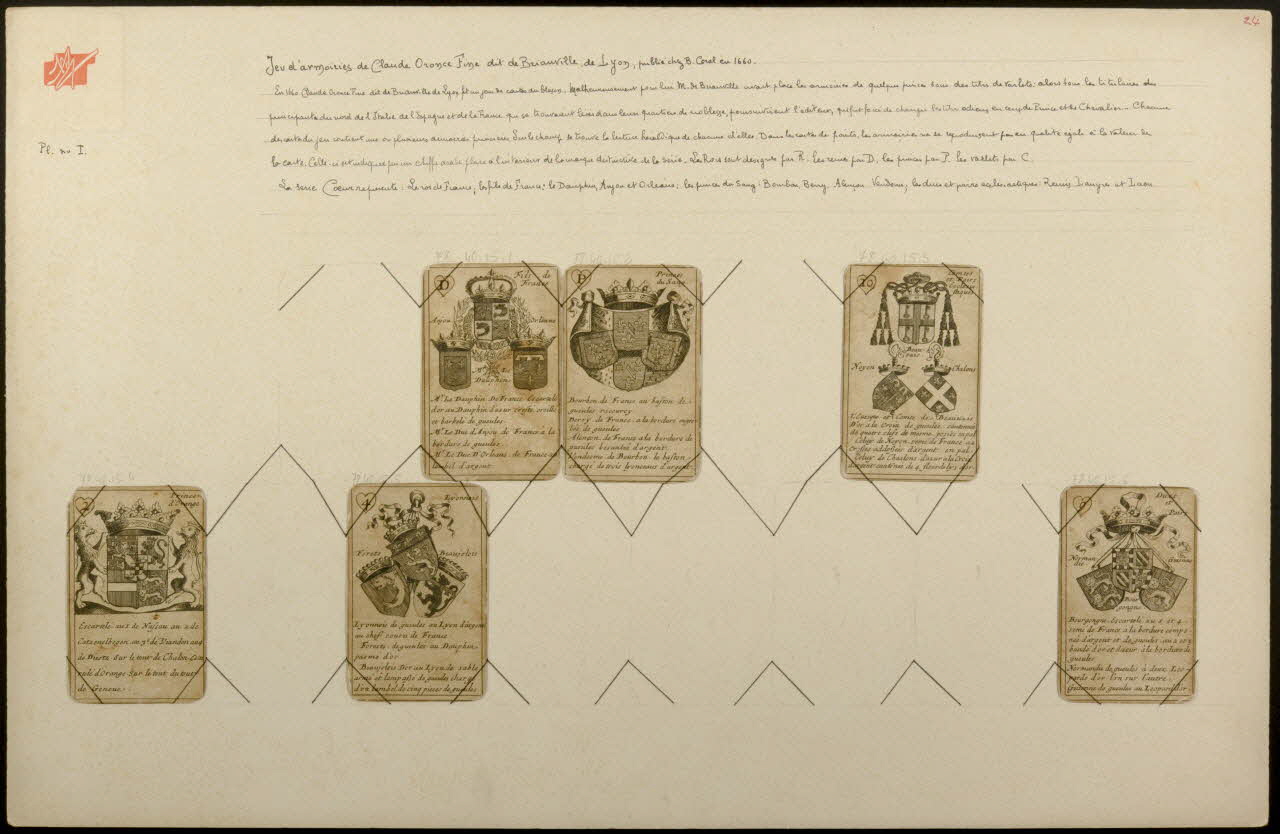 24
Jeu d'armoiries de Claude Oronce Fine dit de Brianville, de Lyon, publié chez B. Coral en 1660.
En 1660 Claude Oronce Fine dit de Brianville de Lyon fit un jeu de cartes du blason. Malheureusement pour lui M. de Brianville avait placé les armoiries de quelque prince sous des titres de Varlets. alors tous les titulaires des
principautés du nord de l'Italie de l'Espagne et de la France qui se trouvaient lésés dans leurs quartiers de noblesse, poursuivirent l'éditeur, qui fut forcé de changer les titres odieux en ceux de Prince et de Chevalier. Chacune
des cartes du jeu contient une ou plusieurs armoiries princières. Sur le champ se trouve la lecture héraldique de chacune d'elles. Dans les cartes de points, les armoiries ne se reproduisent pas en quantité égale à la valeur de
la carte. Celle-ci est indiquée par un chiffre arabe placé à l'intérieur de la marque distinctive de la série. Les Rois sont désignés par R. les reines par D, les princes par P. les valets par C.
Pl. no I.
La série Cœur représente : Le roi de France, les fils de France, le Dauphin, Anjou et Orléans ; les princes du Sang : Bourbon, Berry, Alençon, Vendome ; les ducs et pairs ecclésiastiques : Reims Langres et Laon
D
Fils de
France
Anjou
Orleans
Mr. Le
Dauphin
Mr. Le Dauphin De France Escartelé
d'or au Dauphin d'azur creste oreillé
et barbelé de gueules
Mr. Le Duc d'Anjou de France a la
bordure de gueules
Mr. Le Duc D'Orleans de France au
lambel d'argent
P
Princes
du Sang
Bourbon de France au baston de
gueules racourcy
Berry de France a la bordure engre
lée de gueules
Alençon de France a la bordure de
gueules besantée d'argent
Vendosme de Bourbon le baston
chargé de trois lyonceaux d'argent
10
Comtes
et Pairs
Ecclesia
stiques
Beau-
vais
Noyon
Chalons
L'Evesque et Comte de Beauvais
D'or a la Croix de gueules cantonnée
de quatre clefs de mesme posées en pal
Celuy de Noyon semé de France a 2
Crosses addossées d'argent en pal
Celuy de Chaalons d'azur a la Croix
d'argent cantonée de 4 fleurdelys d'or
2
Princes
d'Orange
Escartelé au 1 de Nassau au 2 de
Catzenelbogen au 3e de Vianden au 4
de Dietz. Sur le tout de Chalon. Esca
rtelé d'Orange Sur le tout du tout
de Geneve
4
Lyonnois
Forets
Beaujolois
Lyonnois de gueules au Lyon d'argent
au chef cousu de France
Forets de gueules au Dauphin
pasmé d'or
Beaujolois D'or au Lyon de sable
armé et lampassé de gueules chargé
d'un lambel de cinq pieces de gueules
6
Ducs
et
Pairs
Norman
die
Guienne
Bour
gongne
Bourgongne Escartelé au 1 et 4
semé de France a la bordure compo
née d'argent et de gueules au 2 et 3
bandé d'or et d'azur a la bordure de
gueules
Normandie de gueules a deux Leo-
pards d'or l'un sur l'autre.
Guienne de gueules au Leopard d'or